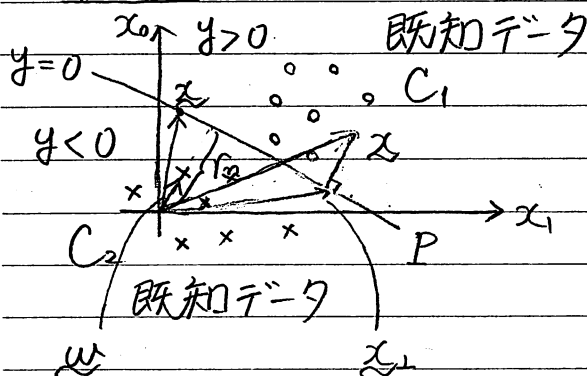 x₀ y>0 既知データ
y=0
x C₁
y<0 x
x₁
C₂ P
既知データ
w x⊥